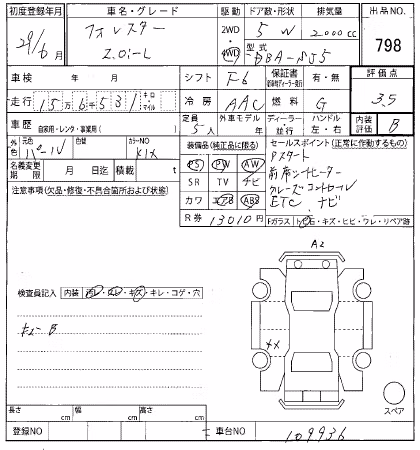 初度登録年月 車名・グレード 駆動 ドア数・形状 排気量 出品NO.
29/6月 フォレスター 2WD 5 W 2000cc 798
2.0i-L 4WD 型式 DBA-SJ5
車検 年 月 シフト F6 保証書 有・無 評価点
走行 15万6千531 キロ マイル 冷房 AAC 燃料 G 3.5
車歴 自家用・レンタ・事業用( ) 定員 5人 外車モデル 年 ディーラー・並行 ハンドル 左・右 内装評価 B
外色 元色 パール 色替 カラーNO K1X 装備品(純正品に限る) セールスポイント(正常に作動するもの)
名義変更期限 月 日迄 積載 t PS PW AW Pスタート
注意事項(欠品・修復・不具合箇所および状態) SR TV ナビ 前席シートヒーター
カワ エアB ABS クルーズコントロール
R券 13010円 ETC ナビ
Fガラス トビ石・キズ・ヒビ・ワレ・リペア跡
A2
検査員記入 内装 汚レ・スレ・キズ・キレ・コゲ・穴
キズ B
スペア
長さ cm 幅 cm 高さ cm
登録NO 車台NO 109936